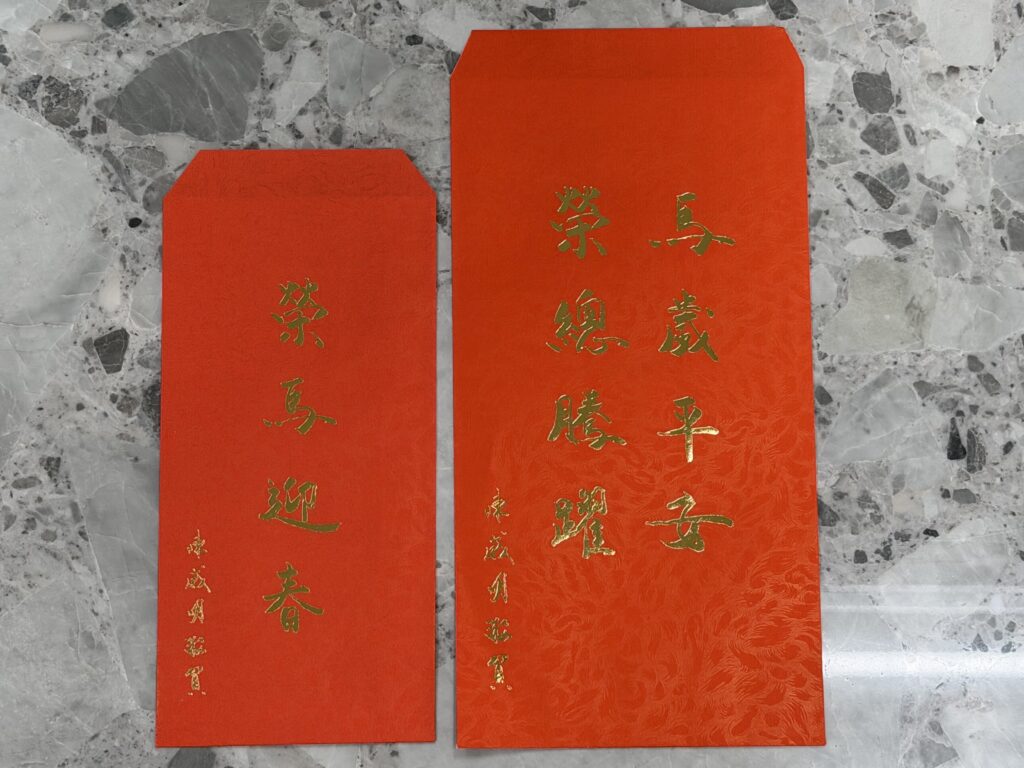 榮馬迎春
陳威明敬賀
馬歲平安
榮總騰躍
陳威明敬賀